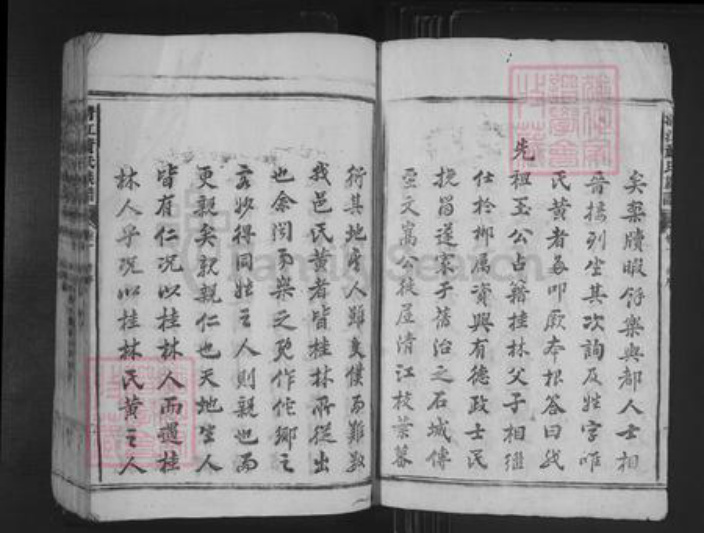 矣案牘暇餘樂與都人士相
晉接列坐其次詢及姓字唯
氏黃者每叩厥本根答曰我
先祖玉公占籍桂林父子相繼
仕於郴属資興有德政士民
挽畱遂家于舊治之石城傳
至文寓公徙居清江枝葉蕃
衍其地身人雖失僕而難數
我邑氏黃者皆桂林所從出
也余聞而樂之既作佗鄉之
客妙得同姓之人則親也而
更親矣親親仁也天地生人
皆有仁况以桂林人而遇桂
林人乎况以桂林氏黃之人
FamilySearch